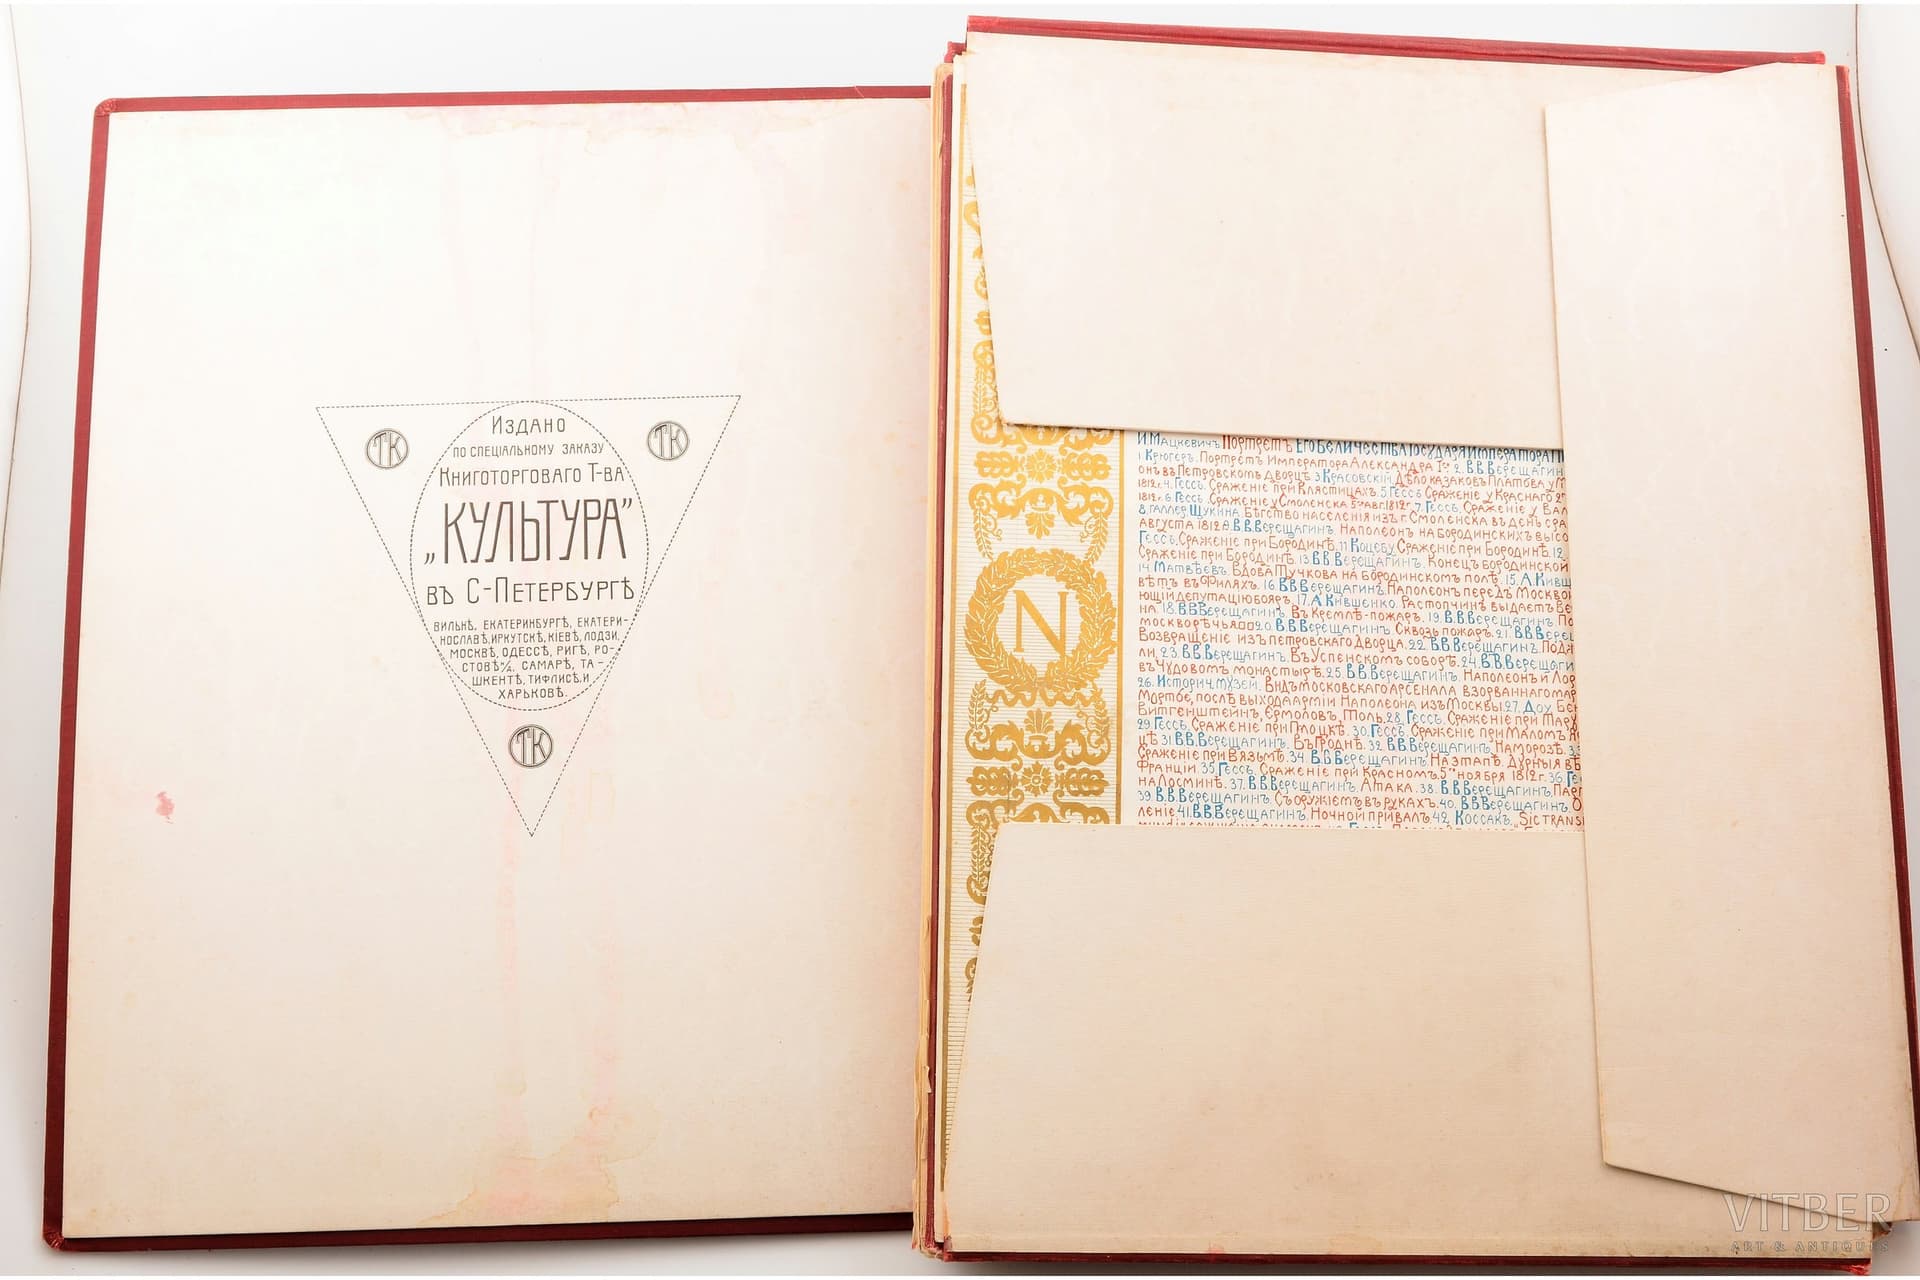 ТК
ТК
Издано
по спеціальному заказу
Книготорговаго Т-ва
„КУЛЬТУРА”
въ С-Петербургѣ
вильнѣ, екатеринбургѣ, екатери-
нославѣ, иркутскѣ, кіевѣ, лодзи,
москвѣ, одессѣ, ригѣ, ро-
стовѣ н/д, самарѣ, та-
шкентѣ, тифлисѣ, и
харьковѣ.
ТК
N
И. Мацкевичъ. Портретъ Его Величества Государя Императора
1 Крюгеръ. Портретъ Императора Александра I го 2. В.В.Верещагин
онъ въ Петровскомъ Дворцѣ. 3. Красовскій. Дѣло казаковъ Платова у М
1812 г. 4. Гессъ. Сраженіе при Клястицахъ. 5. Гессъ Сраженіе у Краснаго
1812 г. 6. Гессъ. Сраженіе у Смоленска 5го авг. 1812 г. 7. Гессъ. Сраженіе у Вал
8. Галлер. Щукина. Бѣгство населенія изъ г. Смоленска въ день сра
августа 1812 9. В.В.Верещагинъ. Наполеонъ на бородинскихъ высо
Гессъ. Сраженіе при Бородинѣ. 11 Коцебу. Сраженіе при Бородинѣ. 12.
Сраженіе при Бородинѣ. 13. В.В.Верещагинъ. Конецъ бородинской
14. Матвѣевъ. Вдова Тучкова на бородинскомъ полѣ. 15. А. Кивш
вѣтъ въ Филяхъ. 16. В.В.Верещагинъ. Наполеонъ передъ Москвой
ющій депутацію бояръ. 17. А. Кившенко. Растопчинъ выдаетъ Ве
на. 18. В.В.Верещагинъ. Въ Кремлѣ - пожаръ. 19. В.В.Верещагинъ. По
москворѣчья 20. В.В.Верещагинъ. Сквозь пожаръ. 21. В.В.Верещ
Возвращеніе изъ петровскаго дворца. 22. В.В.Верещагинъ. Подж
ли. 23. В.В.Верещагинъ. Въ Успенскомъ соборѣ. 24. В.В.Верещаги
въ Чудовомъ монастырѣ. 25. В.В.Верещагинъ. Наполеонъ и Лор
26. Историч. музей. Видъ московскаго Арсенала взорваннаго мар
Мортье, послѣ выхода арміи Наполеона изъ Москвы. 27. Доу. Бен
Витгенштеинъ, Ермоловъ, Толь. 28. Гессъ. Сраженіе при Тару
29. Гессъ. Сраженіе при Полоцкѣ. 30. Гессъ. Сраженіе при Маломъ Яр
цѣ 31. В.В.Верещагинъ. Въ Гроднѣ. 32. В.В.Верещагинъ. На морозѣ. 33
Сраженіе при Вязьмѣ. 34. В.В.Верещагинъ. На этапѣ. Дурныя вѣ
Франціи 35. Гессъ. Сраженіе при Красномъ. 5го ноября 1812 г. 36. Ге
на Лосминѣ. 37. В.В.Верещагинъ. Атака. 38. В.В.Верещагинъ. Парт
39. В.В.Верещагинъ. Съ оружіемъ въ рукахъ. 40. В.В.Верещагинъ О
леніе. 41. В.В.Верещагинъ. Ночной привалъ. 42. Коссакъ. „Sic trans
VITBER
ART & ANTIQUES